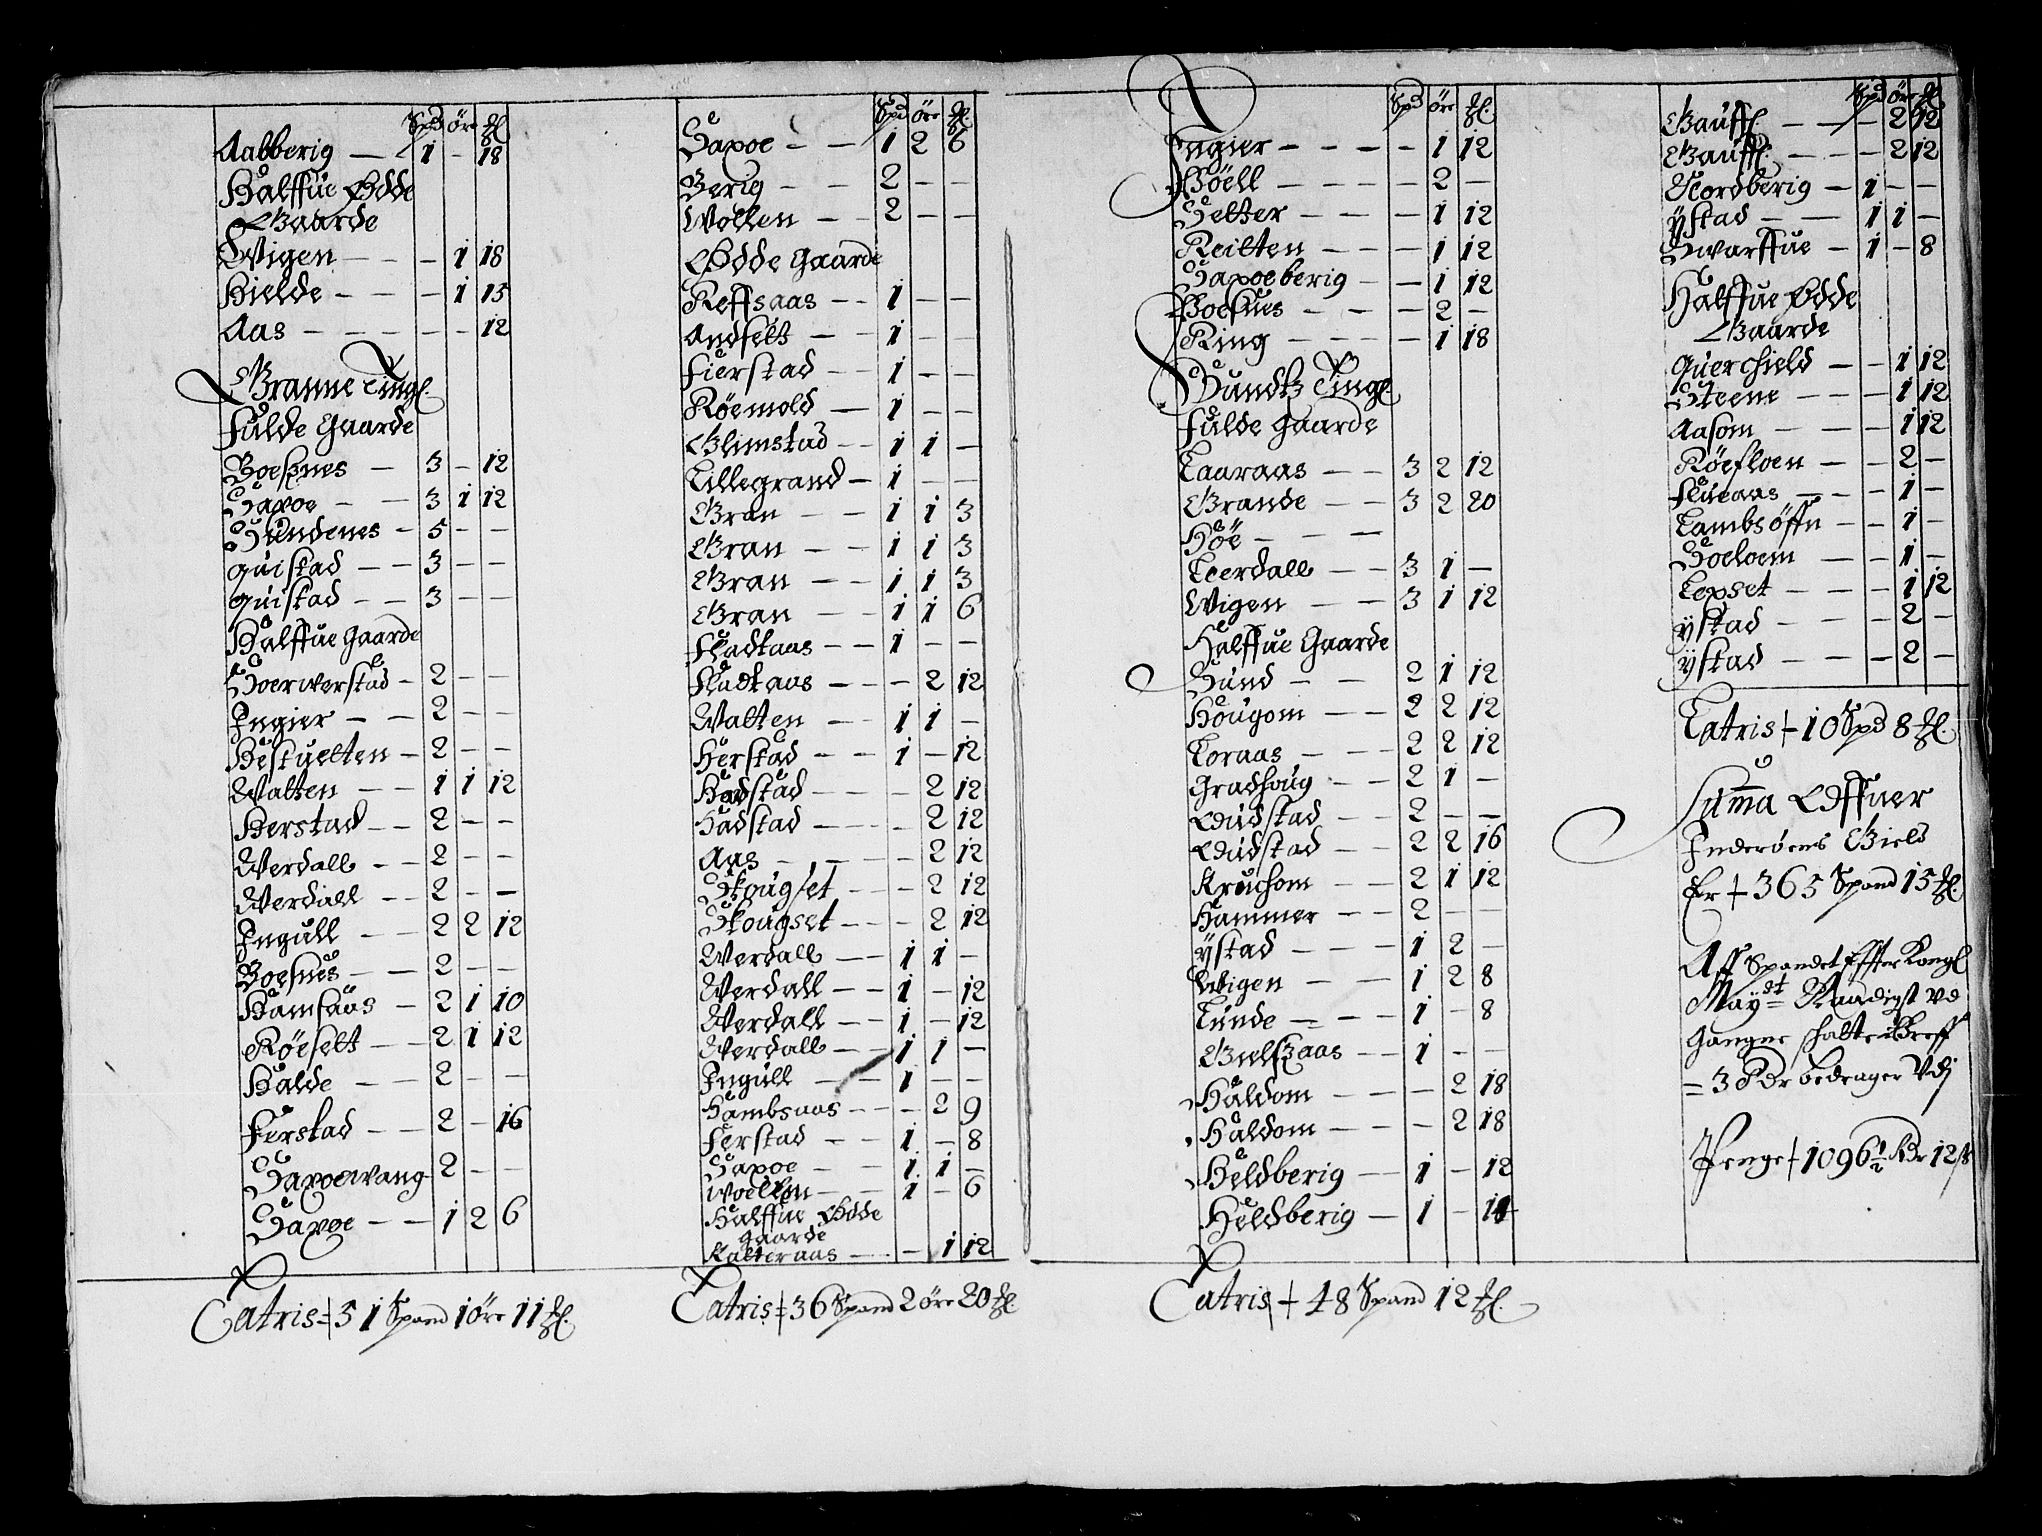 Spd öre ℔
Aalberig — — 1 – 18
Halffue Ødde
Gaarde
Wigen — — – 1 18
Hielde – — – 1 15
Aas – — – – – 12
Granne Tingl.
Fulde Gaarde
Boesnes — 3 – 12
Saxoe – — 3 1 12
Sundenes – 5 – –
quistad – – 3 – –
quistad – – 3 – –
Halffue Gaarde
Soerwerstad – 2 – –
Ingier – – 2 – –
Bestuelten – 2 – –
Walten – – 1 1 12
Herstad – – 2 – –
Werdall – – 2 – –
Werdall – – 2 – –
Ingull – – 2 2 12
Boesnes – – 2 – –
Ramsaas – 2 1 10
Røeselt – – 2 1 12
Halde – – 2 – –
Ferstad – – 2 – 16
Saxoewang – 2 – –
Saxoe – – 1 2 6
Latris – 51 Spand 1 öre 11 ℔.
Spd öre ℔
Saxoe – – 1 2 6
Berig – – 2 – –
Wollen – – 2 – –
Ødde Gaarde
Reffsaas – – 1 – –
Andfelt – – 1 – –
Fierstad – – 1 – –
Røemold – 1 – –
Glimstad – – 1 1 –
Lillegrand – 1 – –
Gran – – 1 1 3
Gran – – 1 1 3
Gran – – 1 1 3
Gran – – 1 1 6
Fladtaas – – 1 – –
Fladtaas – – – 2 12
Walten – – 1 1 –
Herstad – – 1 – 12
Hadstad – – – 2 12
Hadstad – – – 2 12
Aas – – – – 2 12
Skougset – – – 2 12
Skougset – – – 2 12
Werdall – – 1 1 –
Werdall – – 1 – 12
Werdall – – 1 – 12
Werdall – – 1 1 –
Ingull – – 1 – –
Hambsaas – – – 2 9
Ferstad – – 1 – 8
Saxoe – – 1 1 –
Woellen – – 1 – 6
Halffue Ødde
gaarde
Kalteraas – – – 1 12
Latris – 36 Spand 2 öre 20 ℔.
Spd öre ℔
Ingier – – – – 1 12
Bøell – – – – 2 –
Setter – – – – 1 12
Reitten – – – – 1 12
Saxoeberig – – 1 12
Boesnes – – – 2 –
Ring – – – – 1 18
Sundtz Tingl.
Fulde Gaarde
Taaraas – – 3 2 12
Grande – – 3 2 20
Høe – – –
Leerdall – – 3 1 –
Wigen – – 3 1 12
Halffue Gaarde
Sund – – 2 1 12
Hougom – – 2 2 12
Toraas – – 2 2 12
Gradhoug – – 2 1 –
Oudstad – – 2 – –
Oudstad – – 2 2 16
Kruchom – – 2 1 12
Hammer – – 2 – –
ÿstad – – – 1 2 –
Wigen – – 1 2 8
Tunde – – – 1 – 8
Gielszaas – – 1 – –
Haldom – – – – 2 18
Haldom – – – – 2 18
Heldberig – – 1 – 12
Heldberig – 1 – 11
Latris – 48 Spand 12 ℔.
Spd öre ℔
Gauffl. – – – 2 12
Gauffl. – – – 2 12
Nordberig – 1 – –
ÿstad – – 1 1 –
Swarffue – 1 – 8
Halffue Ødde
Gaarde
querchield – – 1 12
Steene – – – 1 12
Aasom – – – 1 12
Røefloen – – 2 –
Flueaas – – – 1 –
Lambsøffn – – 1 –
Soeloem – – 1 –
Lexset – – – 1 12
ÿstad – – – 2 –
ÿstad – – – 2 –
Latris – 10 Spd 8 ℔.
Summa Offuer
Inderöens Gield
Er – 365 Spand 15 ℔.
Aff Spandet Effter Kongl
May:st Naadigst vd
Gangne skatte Breff
= 3 Rdr bedrager Vdj
Penge – 1096½ Rdr 12 s